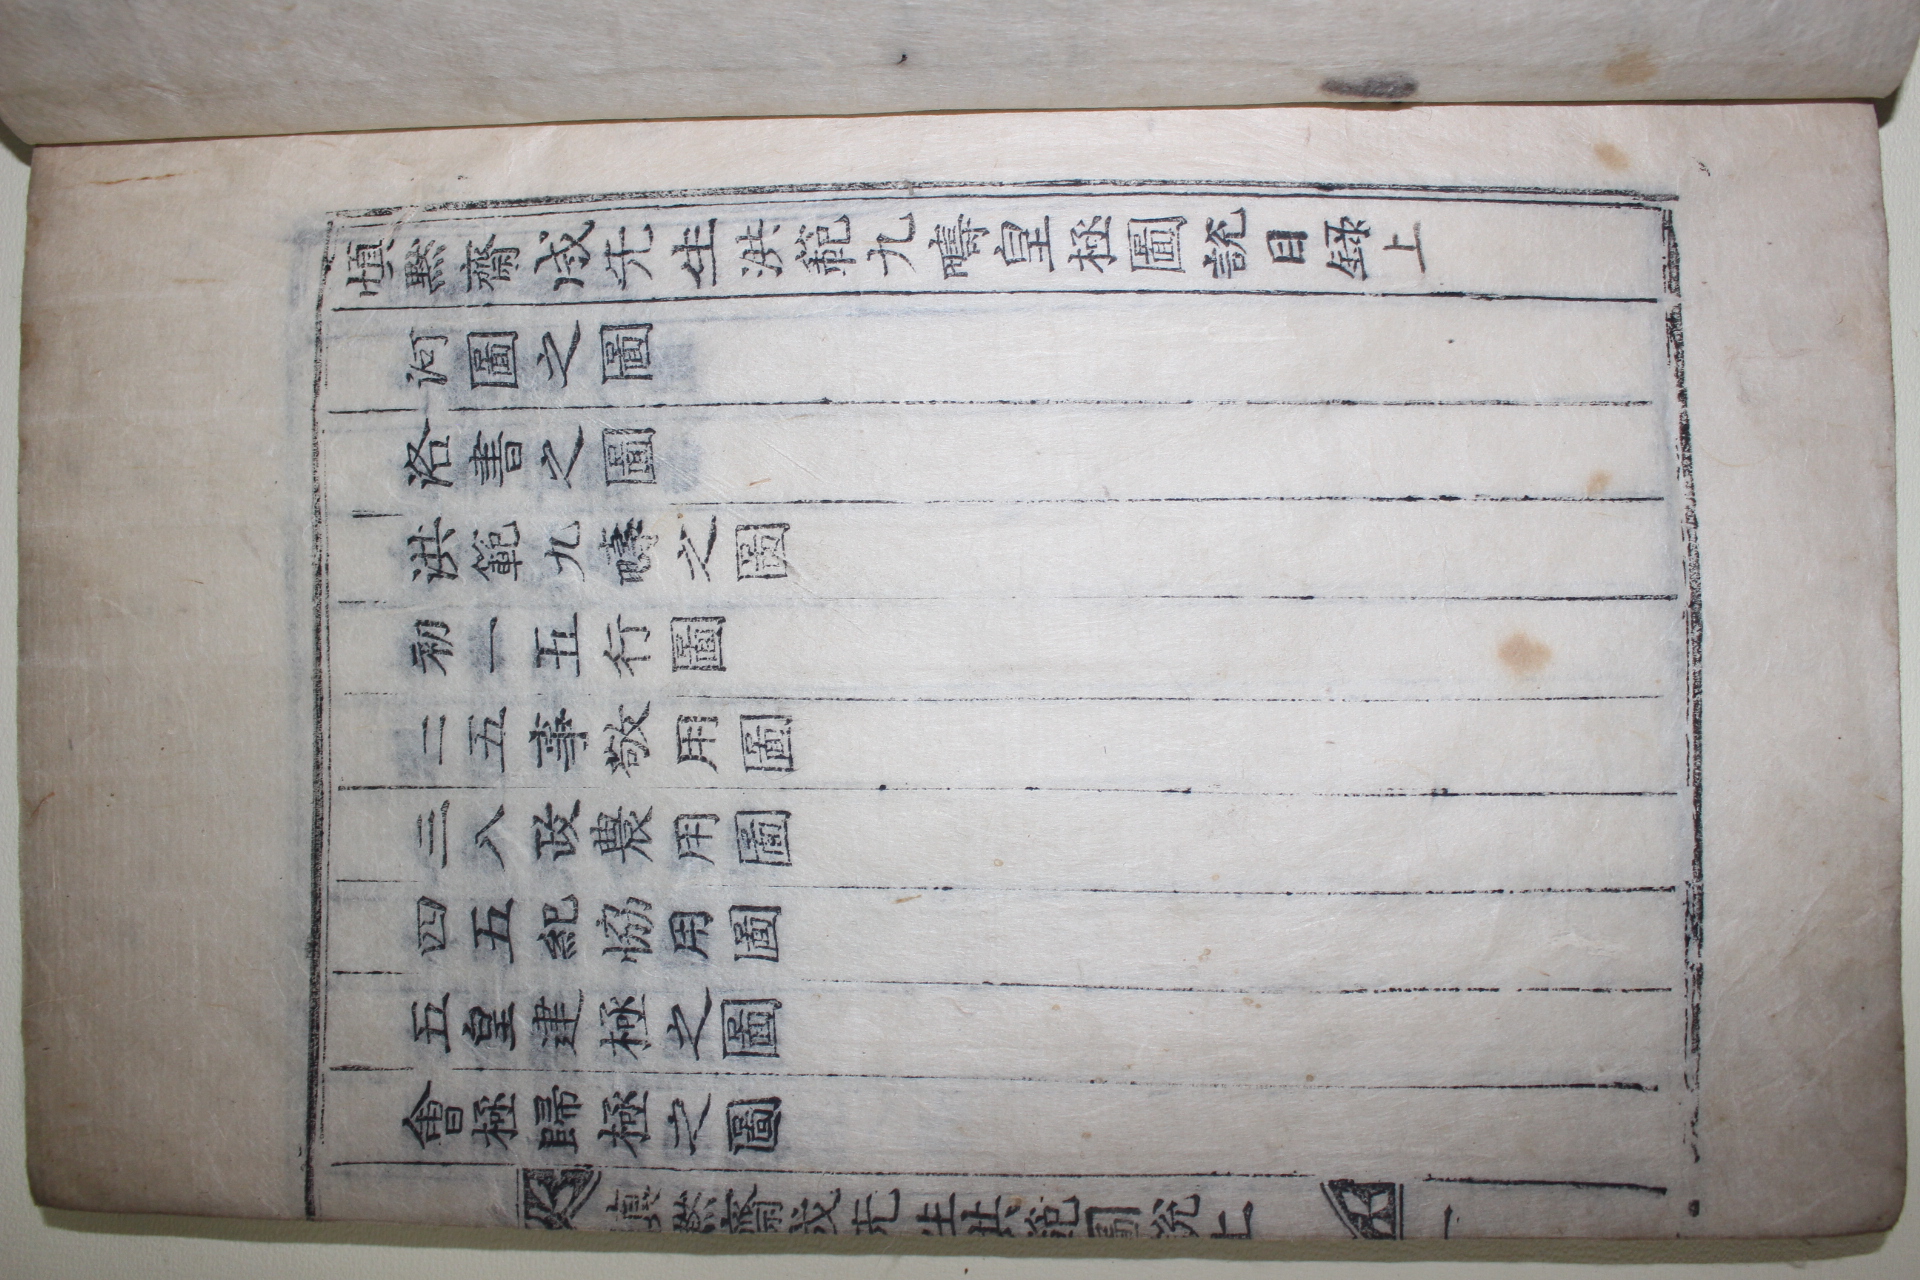 愼黙齋成先生洪範九疇皇極圖說目録上
河圖之圖
洛書之圖
洪範九疇之圖
初一五行圖
二五事敬用圖
三八政農用圖
四五紀協用圖
五皇建極之圖
會極歸極之圖
愼黙齋成先生洪範圖說上 一